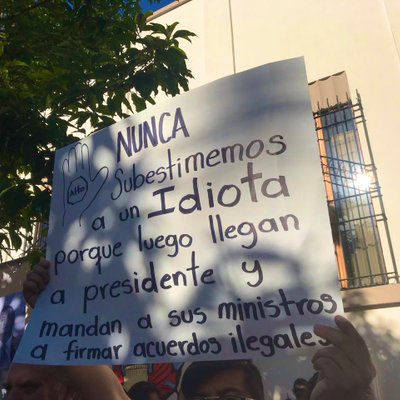 NUNCA
Alto
Subestimemos
a un Idiota
porque luego llegan
a presidente y
mandan a sus ministros
a firmar acuerdos ilegales